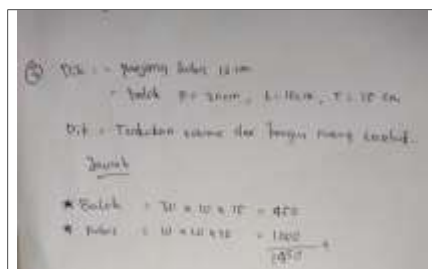 ③ Dik : - panjang kubus 10 cm
- balok P = 30 cm, L = 10 cm, T = 15 cm
Dit : Tentukan volume dari bangun ruang tersebut.
Jawab
* Balok = 30 x 10 x 15 = 450
* Kubus = 10 x 10 x 10 = 1000
1450